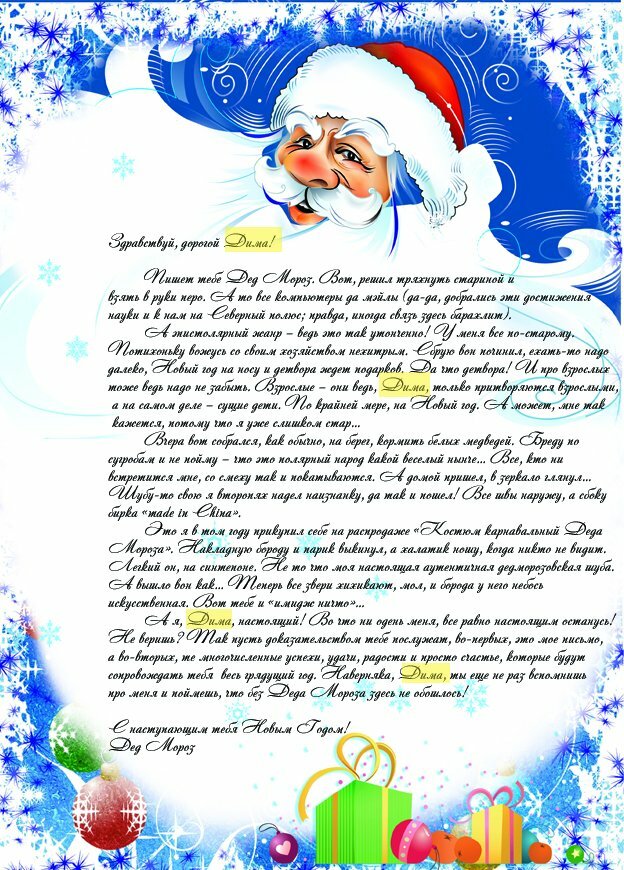 Здравствуй, дорогой Дима!
Пишет тебе Дед Мороз. Вот, решил тряхнуть стариной и
взять в руки перо. А то все компьютеры да мэйлы (да-да, добрались эти достижения
науки и к нам на Северный полюс; правда, иногда связь здесь барахлит).
А эпистолярный жанр – ведь это так утонченно! У меня все по-старому.
Потихоньку вожусь со своим хозяйством нехитрым. Сбрую вон починил, ехать-то надо
далеко, Новый год на носу и детвора ждет подарков. Да что детвора! И про взрослых
тоже ведь надо не забыть. Взрослые – они ведь, Дима, только притворяются взрослыми,
а на самом деле – сущие дети. По крайней мере, на Новый год. А может, мне так
кажется, потому что я уже слишком стар...
Вчера вот собрался, как обычно, на берег, кормить белых медведей. Бреду по
сугробам и не пойму – что это полярный народ какой веселый нынче... Все, кто ни
встретится мне, со смеху так и покатываются. А домой пришел, в зеркало глянул...
Шубу-то свою я второпях надел наизнанку, да так и пошел! Все швы наружу, а сбоку
бирка «made in China».
Это я в том году прикупил себе на распродаже «Костюм карнавальный Деда
Мороза». Накладную бороду и парик выкинул, а халатик ношу, когда никто не видит.
Легкий он, на синтепоне. Не то что моя настоящая аутентичная дедморозовская шуба.
А вышло вон как... Теперь все звери хихикают, мол, и борода у него небось
искусственная. Вот тебе и «имидж ничто»...
А я, Дима, настоящий! Во что ни одень меня, все равно настоящим останусь!
Не веришь? Так пусть доказательством тебе послужат, во-первых, это мое письмо,
а во-вторых, те многочисленные успехи, удачи, радости и просто счастье, которые будут
сопровождать тебя весь грядущий год. Наверняка, Дима, ты еще не раз вспомнишь
про меня и поймешь, что без Деда Мороза здесь не обошлось!
С наступающим тебя Новым Годом!
Дед Мороз